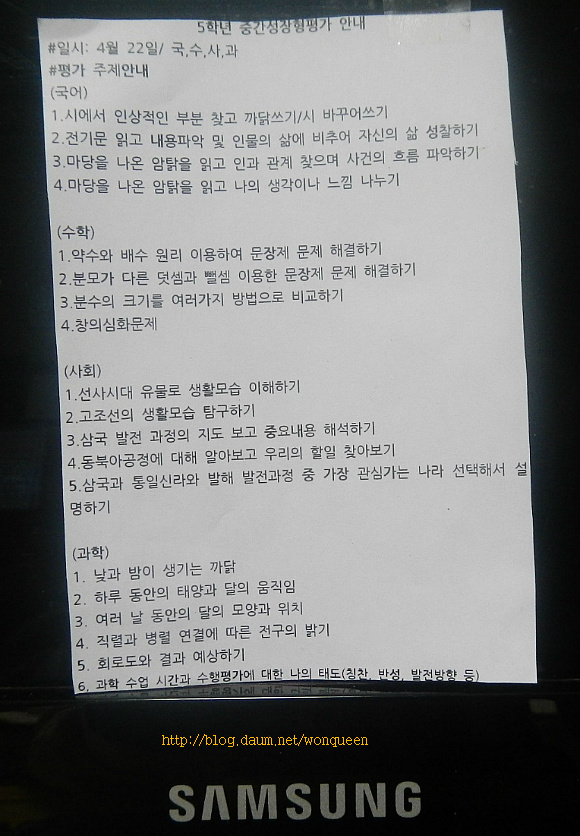 5학년 중간성장형평가 안내
#일시: 4월 22일/ 국,수,사,과
#평가 주제안내
(국어)
1.시에서 인상적인 부분 찾고 까닭쓰기/시 바꾸어쓰기
2.전기문 읽고 내용파악 및 인물의 삶에 비추어 자신의 삶 성찰하기
3.마당을 나온 암탉을 읽고 인과 관계 찾으며 사건의 흐름 파악하기
4.마당을 나온 암탉을 읽고 나의 생각이나 느낌 나누기
(수학)
1.약수와 배수 원리 이용하여 문장제 문제 해결하기
2.분모가 다른 덧셈과 뺄셈 이용한 문장제 문제 해결하기
3.분수의 크기를 여러가지 방법으로 비교하기
4.창의심화문제
(사회)
1.선사시대 유물로 생활모습 이해하기
2.고조선의 생활모습 탐구하기
3.삼국 발전 과정의 지도 보고 중요내용 해석하기
4.동북아공정에 대해 알아보고 우리의 할일 찾아보기
5.삼국과 통일신라와 발해 발전과정 중 가장 관심가는 나라 선택해서 설
명하기
(과학)
1. 낮과 밤이 생기는 까닭
2. 하루 동안의 태양과 달의 움직임
3. 여러 날 동안의 달의 모양과 위치
4. 직렬과 병렬 연결에 따른 전구의 밝기
5. 회로도와 결과 예상하기
6. 과학 수업 시간과 수행평가에 대한 나의 태도(칭찬, 반성, 발전방향 등)
http://blog.daum.net/wonqueen
SAMSUNG